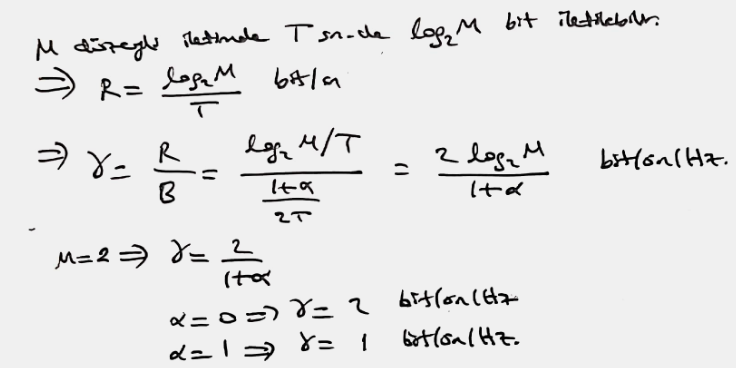 M düzeyli iletimde T sn-de log₂M bit iletilebilir.
⇒ R = log₂M / T bit/sn
⇒ γ = R/B = (log₂M/T) / ((1+α)/2T) = 2 log₂M / (1+α) bit/sn/Hz.
M=2 ⇒ γ = 2/(1+α)
α=0 ⇒ γ = 2 bit/sn/Hz
α=1 ⇒ γ = 1 bit/sn/Hz.